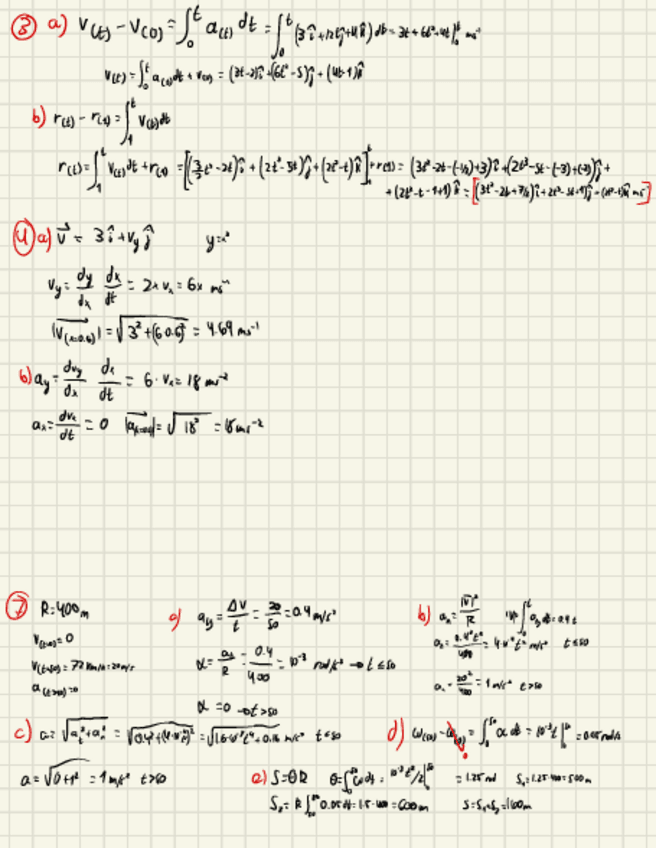 ③ a) V(t) - V(0) = ∫₀ᵗ a(t) dt = ∫₀ᵗ (3î+12tĵ+4k̂) dt = 3t+6t²+4t|₀ᵗ ms⁻¹
V(t) = ∫₀ᵗ a(t)dt + v(0) = (3t-2)î+(6t²-5)ĵ+(4t-1)k̂
b) r(t) - r(1) = ∫₁ᵗ V(t)dt
r(t) = ∫₁ᵗ V(t)dt + r(1) = [(3/2t²-2t)î+(2t³-5t)ĵ+(2t²-t)k̂]₁ᵗ + r(1) =
+(2t²-t-1+1)k̂ =
④ a) v⃗ = 3î+v_y ĵ y=x²
v_y = dy/dx dx/dt = 2x v_x = 6x ms⁻¹
|V(x=0.6)| = √(3²+(6·0.6)²) = 4.69 ms⁻¹
b) a_y = dv_y/dx dx/dt = 6·v_x = 18 ms⁻²
a_x = dv_x/dt = 0 = √18² = 18 ms⁻²
⑦ R=400m
V(t=0)=0
V(t=50)=72 km/h=20m/s
a(t>50)=0
a) a_t = ΔV/t = 20/50 = 0.4 m/s²
α = a_t/R = 0.4/400 = 10⁻³ rad/s² → t≤50
α = 0 → t>50
b) a_n = |V|²/R
a_n = 0.4²t²/400 = 4·10⁻⁴t² m/s² t≤50
a_n = 20²/400 = 1 m/s² t>50
c) a = √(a_t²+a_n²) = √(0.4²+(4·10⁻⁴t²)²) = √(16·10⁻⁸t⁴+0.16) m/s² t≤50
a = √(0+1²) = 1 m/s² t>50
d) ω(50) - ω(0) = ∫₀⁵⁰ α dt = 10⁻³t|₀⁵⁰ = 0.05 rad/s
e) S=θR θ=∫₀⁵⁰ωdt = 10⁻³t²/2|₀⁵⁰ = 1.25 rad S₁=1.25·400=500m
S₂ = R∫ 0.05dt = 1.5·400 = 600m S=S₁+S₂=1100m